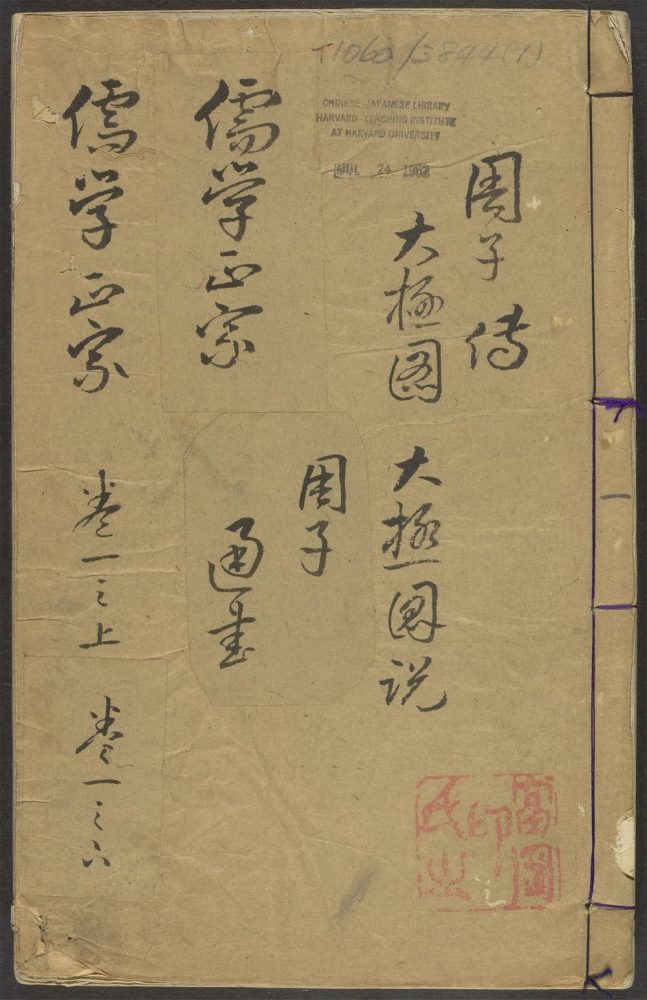 T1060/3844(1)
CHINESE-JAPANESE LIBRARY
HARVARD-YENCHING INSTITUTE
AT HARVARD UNIVERSITY
JUL 24 1962
周子傳
大極図
大極図説
周子
通書
儒学正宗
儒学正宗
巻一之上
巻一之下
一
富岡
氏之
印